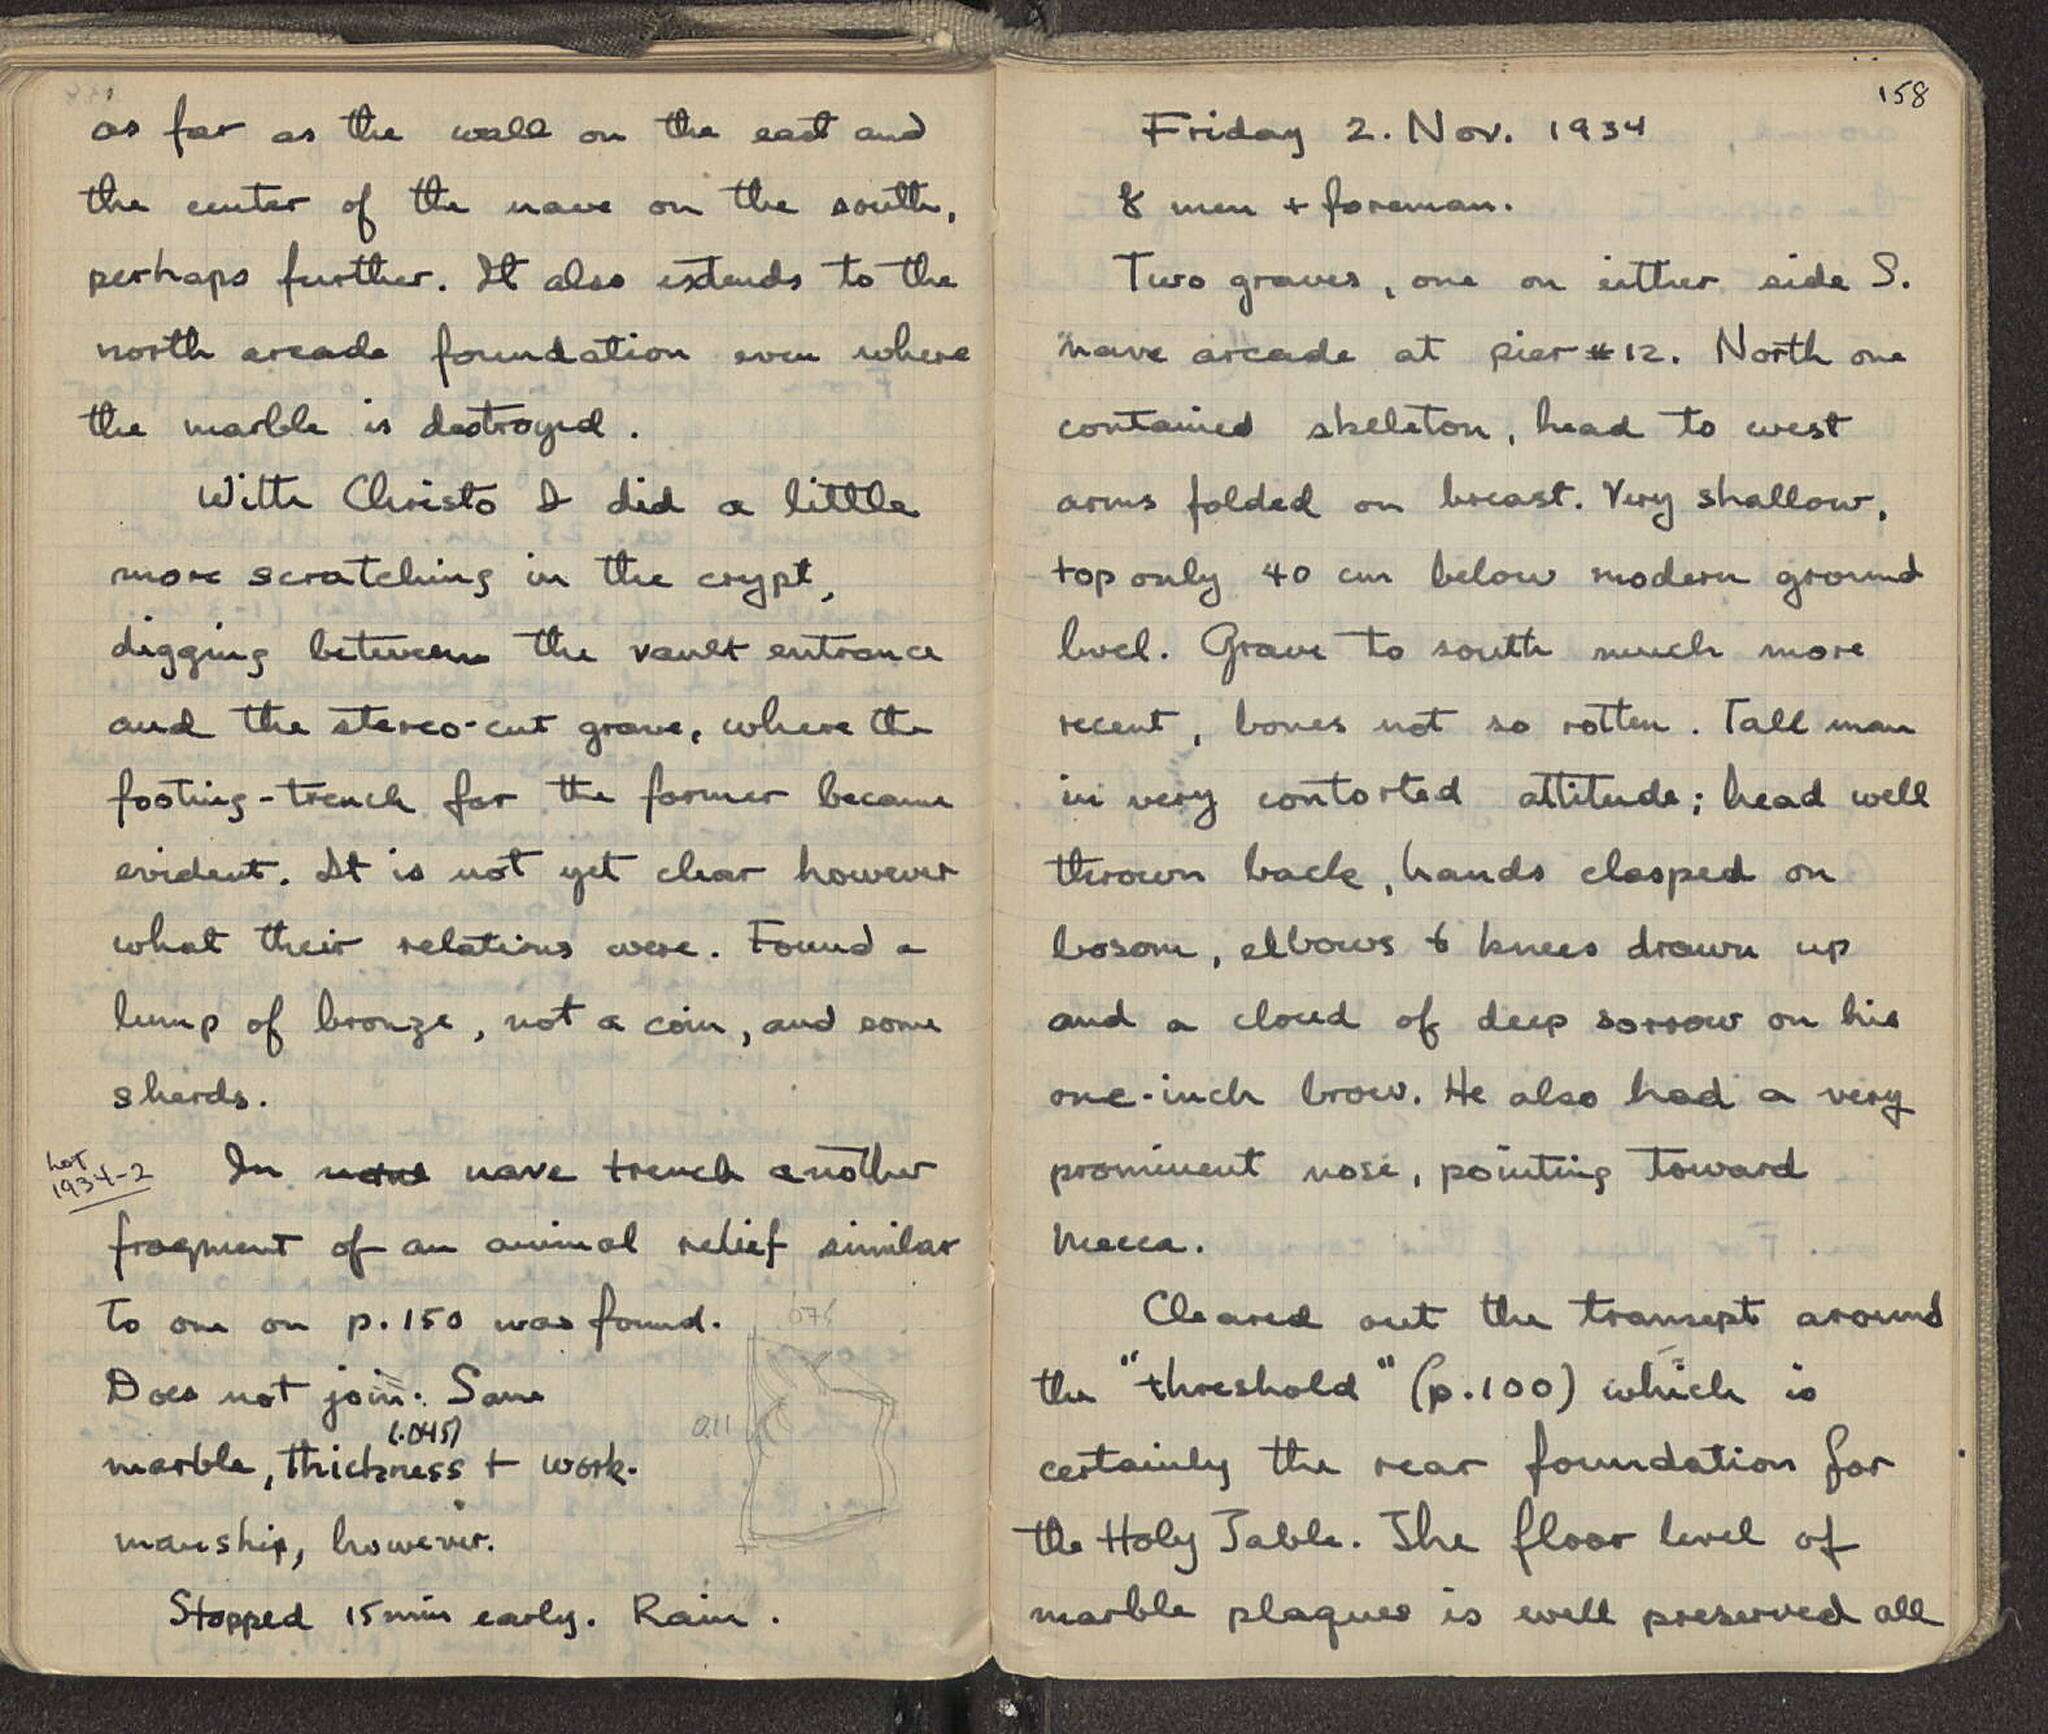 as far as the wall on the east and
the center of the nave on the south,
perhaps further. It also extends to the
north arcade foundation even where
the marble is destroyed.
With Christo I did a little
more scratching in the crypt,
digging between the vault entrance
and the stereo-cut grave, where the
footing-trench for the former became
evident. It is not yet clear however
what their relations were. Found a
lump of bronze, not a coin, and some
sherds.
Lot
1934-2
In nave trench another
fragment of an animal relief similar
to one on p. 150 was found.
.075
Does not join. Same
0.11
(.045)
marble, thickness + work-
manship, however.
Stopped 15 min early. Rain.
158
Friday 2. Nov. 1934
8 men + foreman.
Two graves, one on either side S.
nave arcade at pier #12. North one
contained skeleton, head to west
arms folded on breast. Very shallow,
top only 40 cm below modern ground
level. Grave to south much more
recent, bones not so rotten. Tall man
in very contorted attitude; head well
thrown back, hands clasped on
bosom, elbows & knees drawn up
and a cloud of deep sorrow on his
one-inch brow. He also had a very
prominent nose, pointing toward
Mecca.
Cleared out the transept around
the "threshold" (p. 100) which is
certainly the rear foundation for
the Holy Table. The floor level of
marble plaques is well preserved all